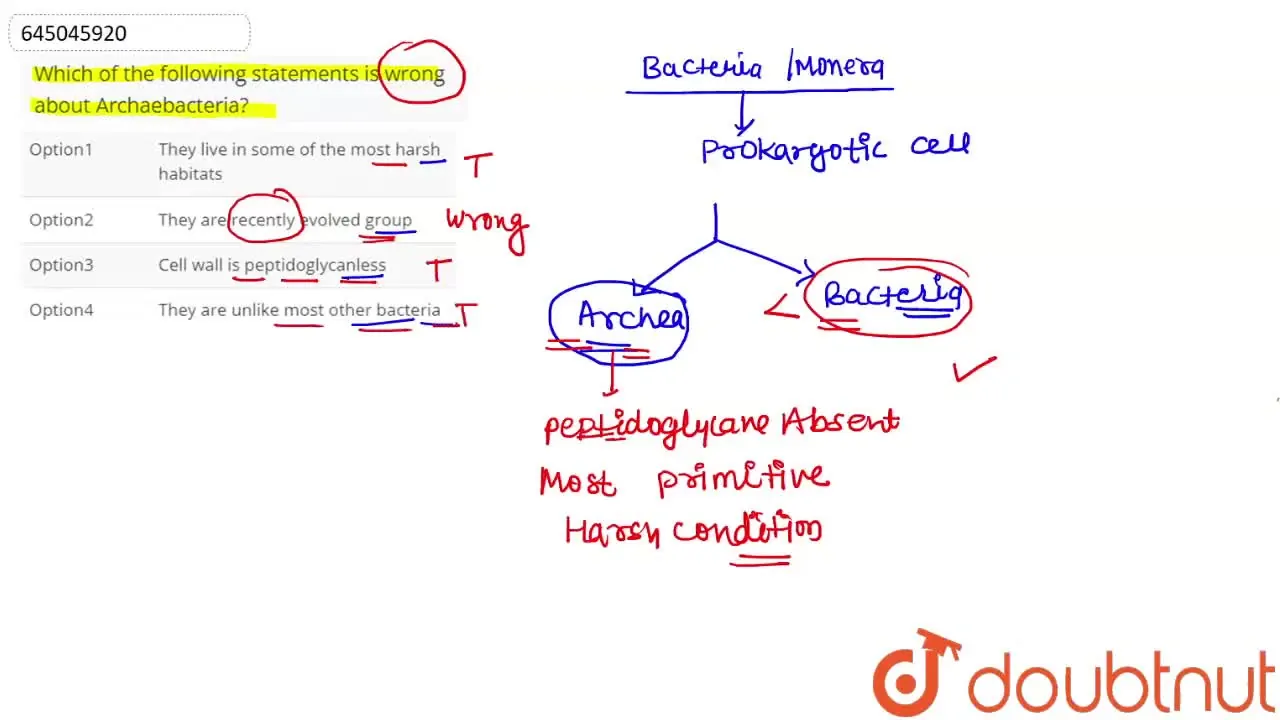 645045920
Which of the following statements is wrong
about Archaebacteria?
Option1 They live in some of the most harsh
habitats T
Option2 They are recently evolved group wrong
Option3 Cell wall is peptidoglycanless T
Option4 They are unlike most other bacteria T
Bacteria /Monera
Prokaryotic cell
Archea
Bacteria
Peptidoglycane Absent
Most primitive
Harsh condition
doubtnut